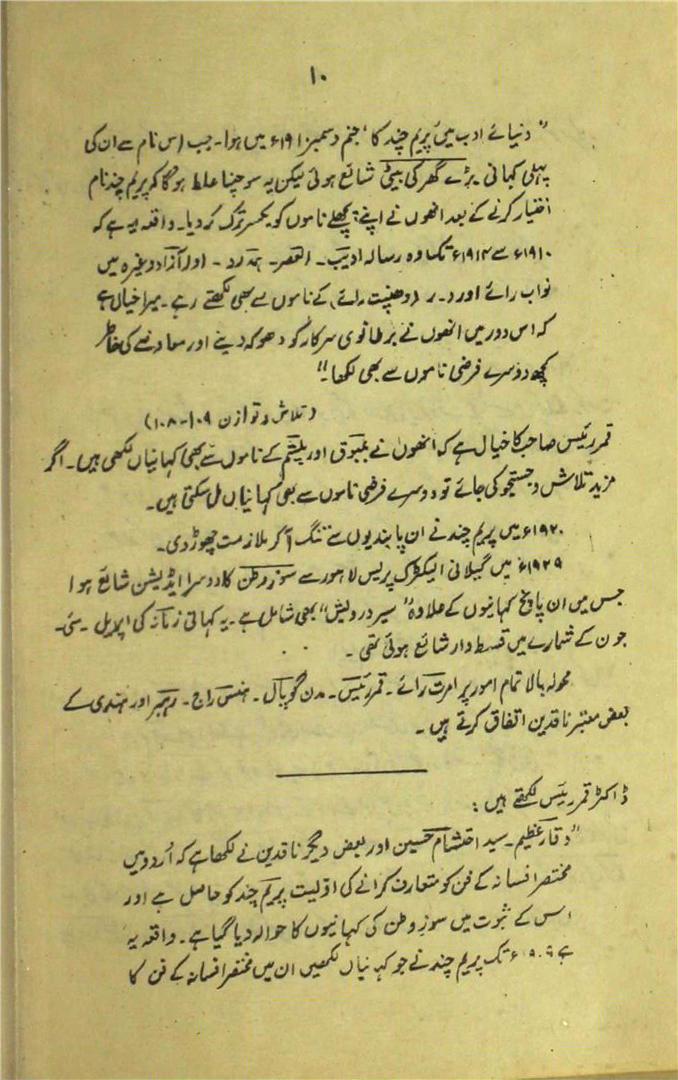 ۱۰
"دنیائے ادب میں پریم چند کا جنم دسمبر ۱۹۱۰ء میں ہوا۔ جب اس نام سے ان کی
پہلی کہانی بڑے گھر کی بیٹی شائع ہوئی لیکن یہ سوچنا غلط ہوگا کہ پریم چند نام
اختیار کرنے کے بعد انھوں نے اپنے پچھلے ناموں کو یکسر ترک کر دیا۔ واقعہ یہ ہے کہ
۱۹۱۰ء سے ۱۹۱۴ء تک وہ رسالہ ادیب۔ العصر۔ ہمدرد۔ اور آزاد وغیرہ میں
نواب رائے اور د۔ ر (دھنپت رائے) کے ناموں سے بھی لکھتے رہے۔ میرا خیال ہے
کہ اس دور میں انھوں نے برطانوی سرکار کو دھوکہ دینے اور معاوضے کی خاطر
کچھ دوسرے فرضی ناموں سے بھی لکھا۔"
(تلاش و توازن ۱۰۹-۱۰۸)
قمر رئیس صاحب کا خیال ہے کہ انھوں نے بمبوق اور پلشم کے ناموں سے بھی کہانیاں لکھی ہیں۔ اگر
مزید تلاش و جستجو کی جائے تو دوسرے فرضی ناموں سے بھی کہانیاں مل سکتی ہیں۔
۱۹۲۰ء میں پریم چند نے ان پابندیوں سے تنگ آکر ملازمت چھوڑ دی۔
۱۹۲۹ء میں گیلانی الیکٹرک پریس لاہور سے سوز وطن کا دوسرا ایڈیشن شائع ہوا
جس میں ان پانچ کہانیوں کے علاوہ "سیر درویش" بھی شامل ہے۔ یہ کہانی زمانہ کی اپریل۔ مئی۔
جون کے شمارے میں قسط وار شائع ہوئی تھی۔
محولہ بالا تمام امور پر امرت رائے۔ قمر رئیس۔ مدن گوپال۔ ہنس راج۔ رہبر اور ہندی کے
بعض معتبر ناقدین اتفاق کرتے ہیں۔
ڈاکٹر قمر رئیس لکھتے ہیں:
"وقار عظیم۔ سید احتشام حسین اور بعض دیگر ناقدین نے لکھا ہے کہ اُردو میں
مختصر افسانہ کے فن کو متعارف کرانے کی اوّلیت پریم چند کو حاصل ہے اور
اس کے ثبوت میں سوز وطن کی کہانیوں کا حوالہ دیا گیا ہے۔ واقعہ یہ
ہے ۱۹۰۹ء تک پریم چند نے جو کہانیاں لکھیں ان میں مختصر افسانہ کے فن کا